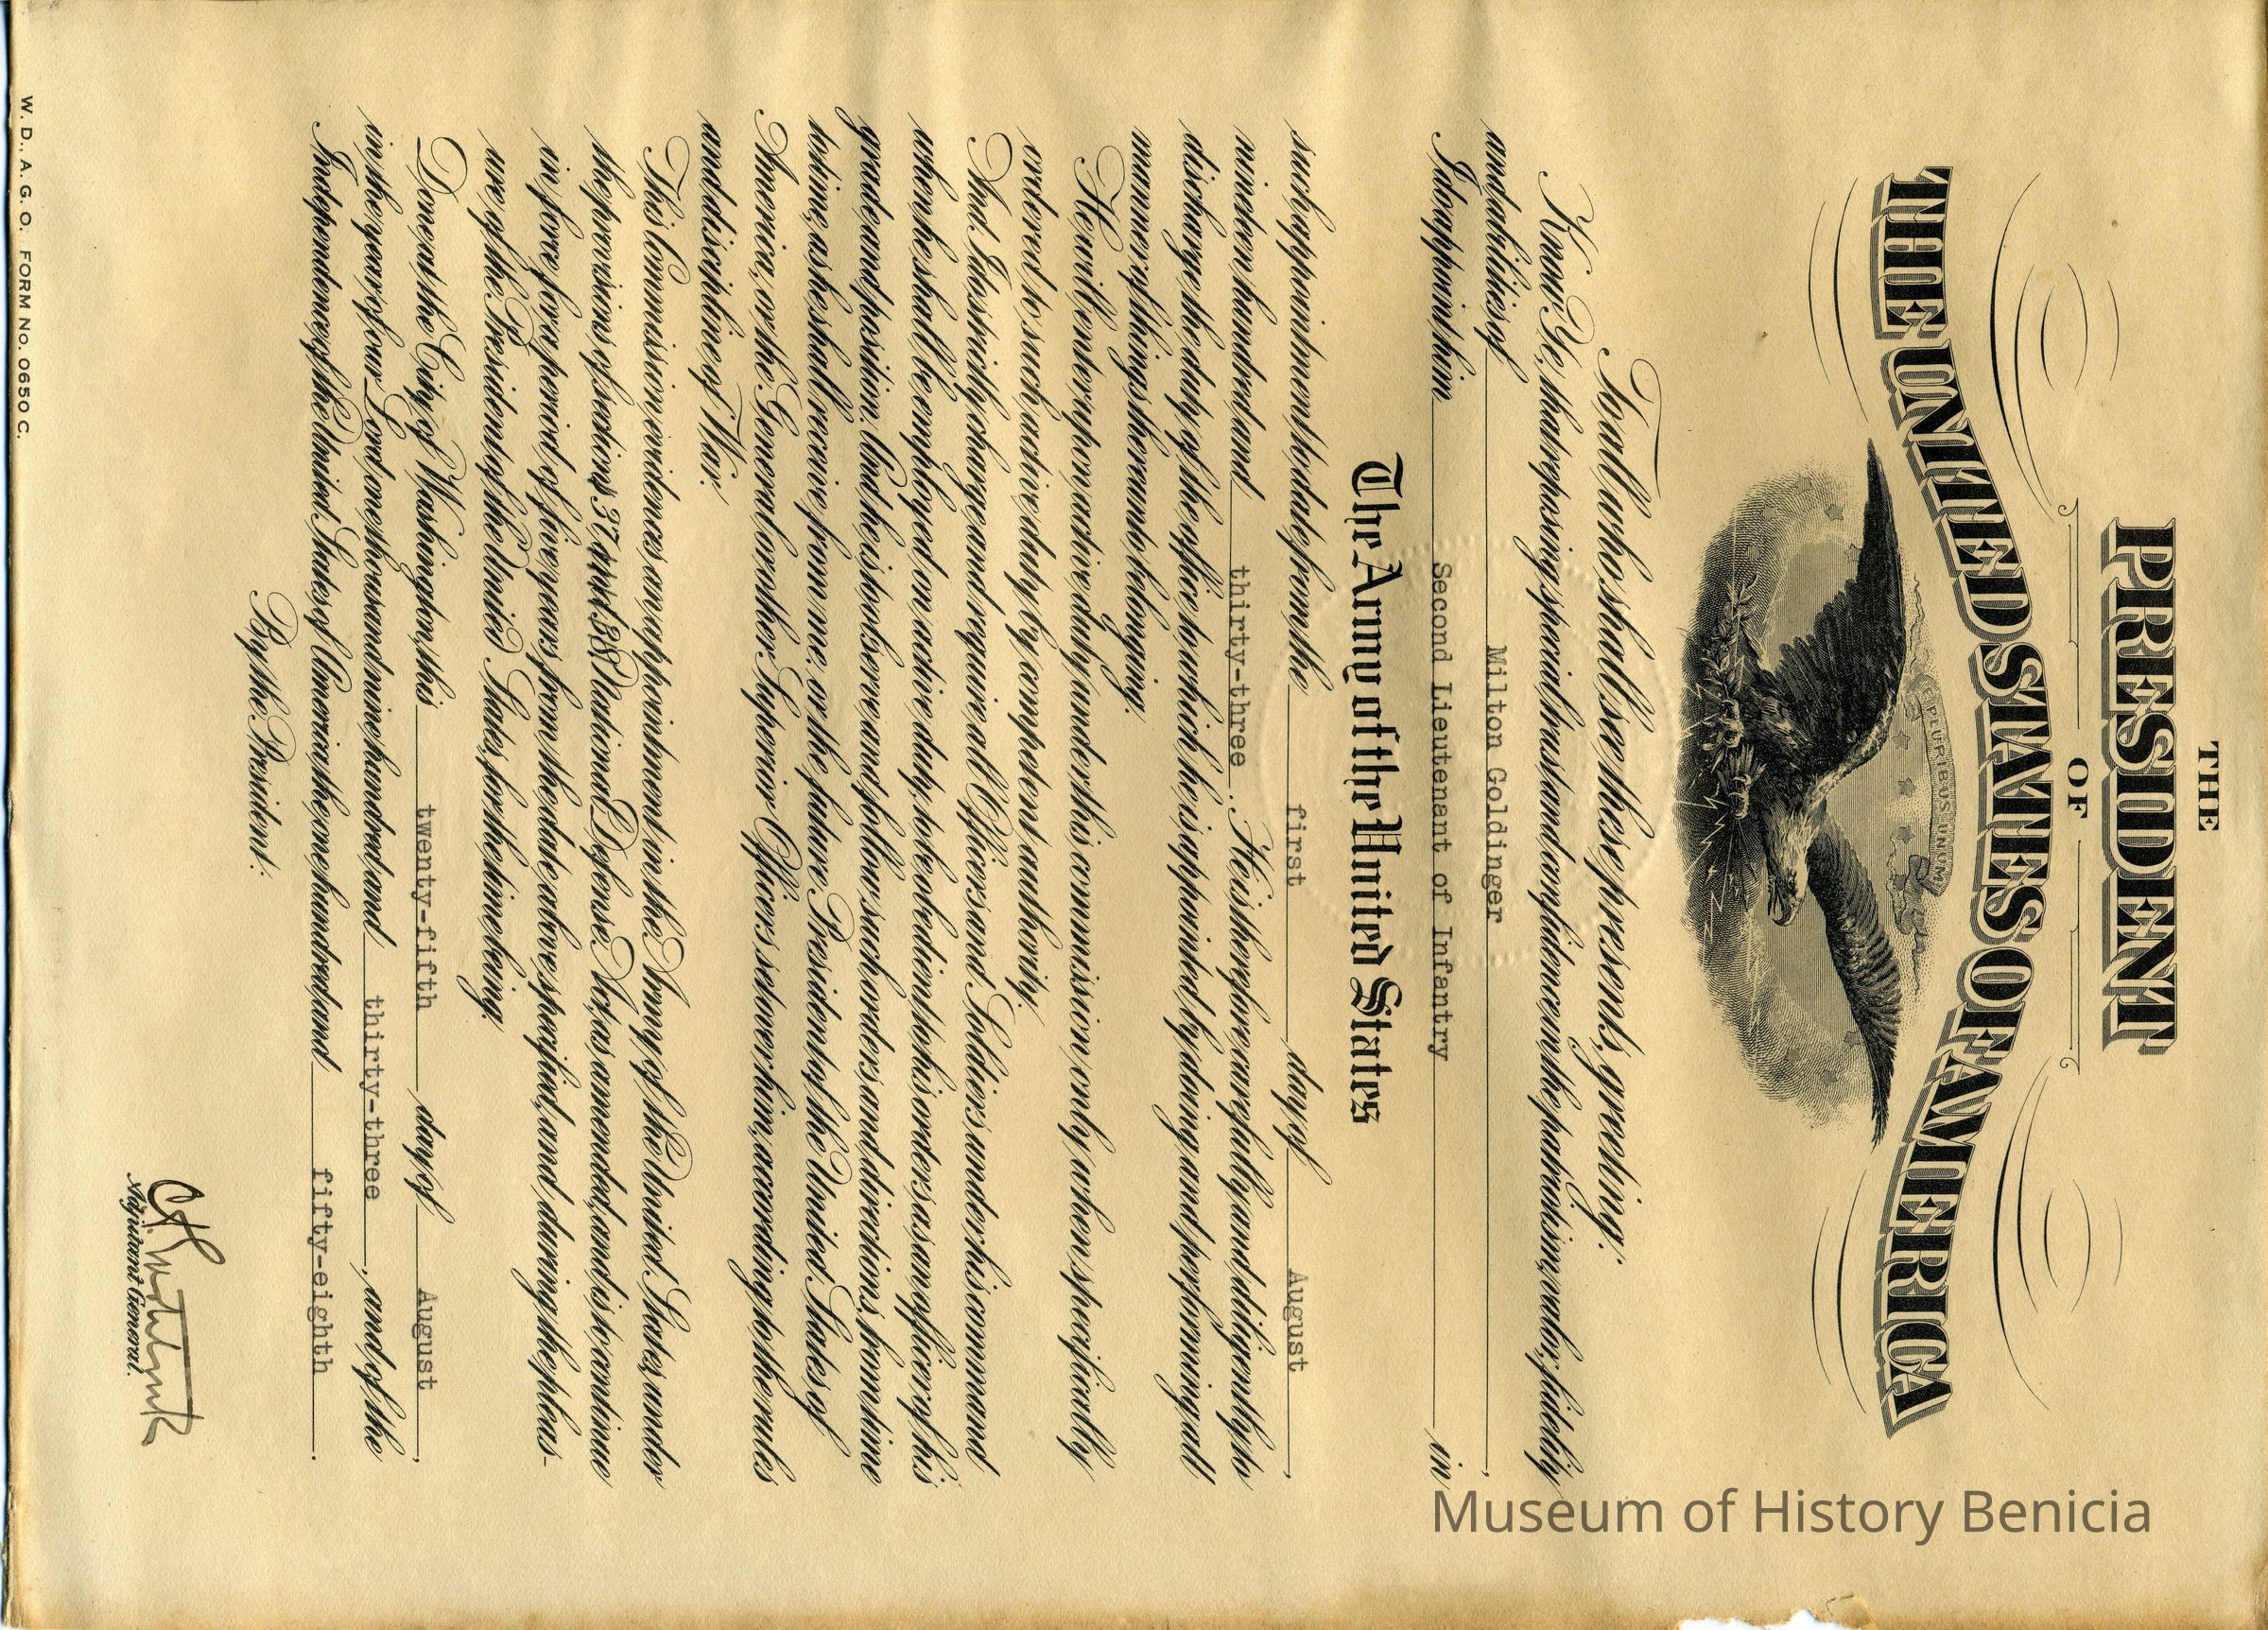 THE
PRESIDENT
OF
THE UNITED STATES OF AMERICA
E PLURIBUS UNUM
To all who shall see these presents, greeting:
Know Ye, that reposing special trust and confidence in the patriotism, valor, fidelity
and abilities of Milton Goldinger,
I do appoint him Second Lieutenant of Infantry in
The Army of the United States
such appointment to date from the first day of August,
nineteen hundred and thirty-three. He is therefore carefully and diligently to
discharge the duty of the office to which he is appointed by doing and performing all
manner of things thereunto belonging.
He will enter upon active duty under this commission only when specifically
ordered to such active duty by competent authority.
And I do strictly charge and require all Officers and Soldiers under his command
when he shall be employed on active duty, to be obedient to his orders as an officer of his
grade and position. And he is to observe and follow such orders and directions, from time
to time, as he shall receive from me, or the future President of the United States of
America, or the General or other Superior Officers set over him, according to the rules
and discipline of War.
This Commission evidences an appointment in the Army of the United States, under
the provisions of sections 37 and 38, National Defense Act, as amended, and is to continue
in force for a period of five years from the date above specified, and during the pleas-
ure of the President of the United States, for the time being.
Done at the City of Washington, this twenty-fifth day of August,
in the year of our Lord one thousand nine hundred and thirty-three, and of the
Independence of the United States of America the one hundred and fifty-eighth.
By the President:
Adjutant General.
W. D., A. G. O. FORM No. 0650 C.
Museum of History Benicia